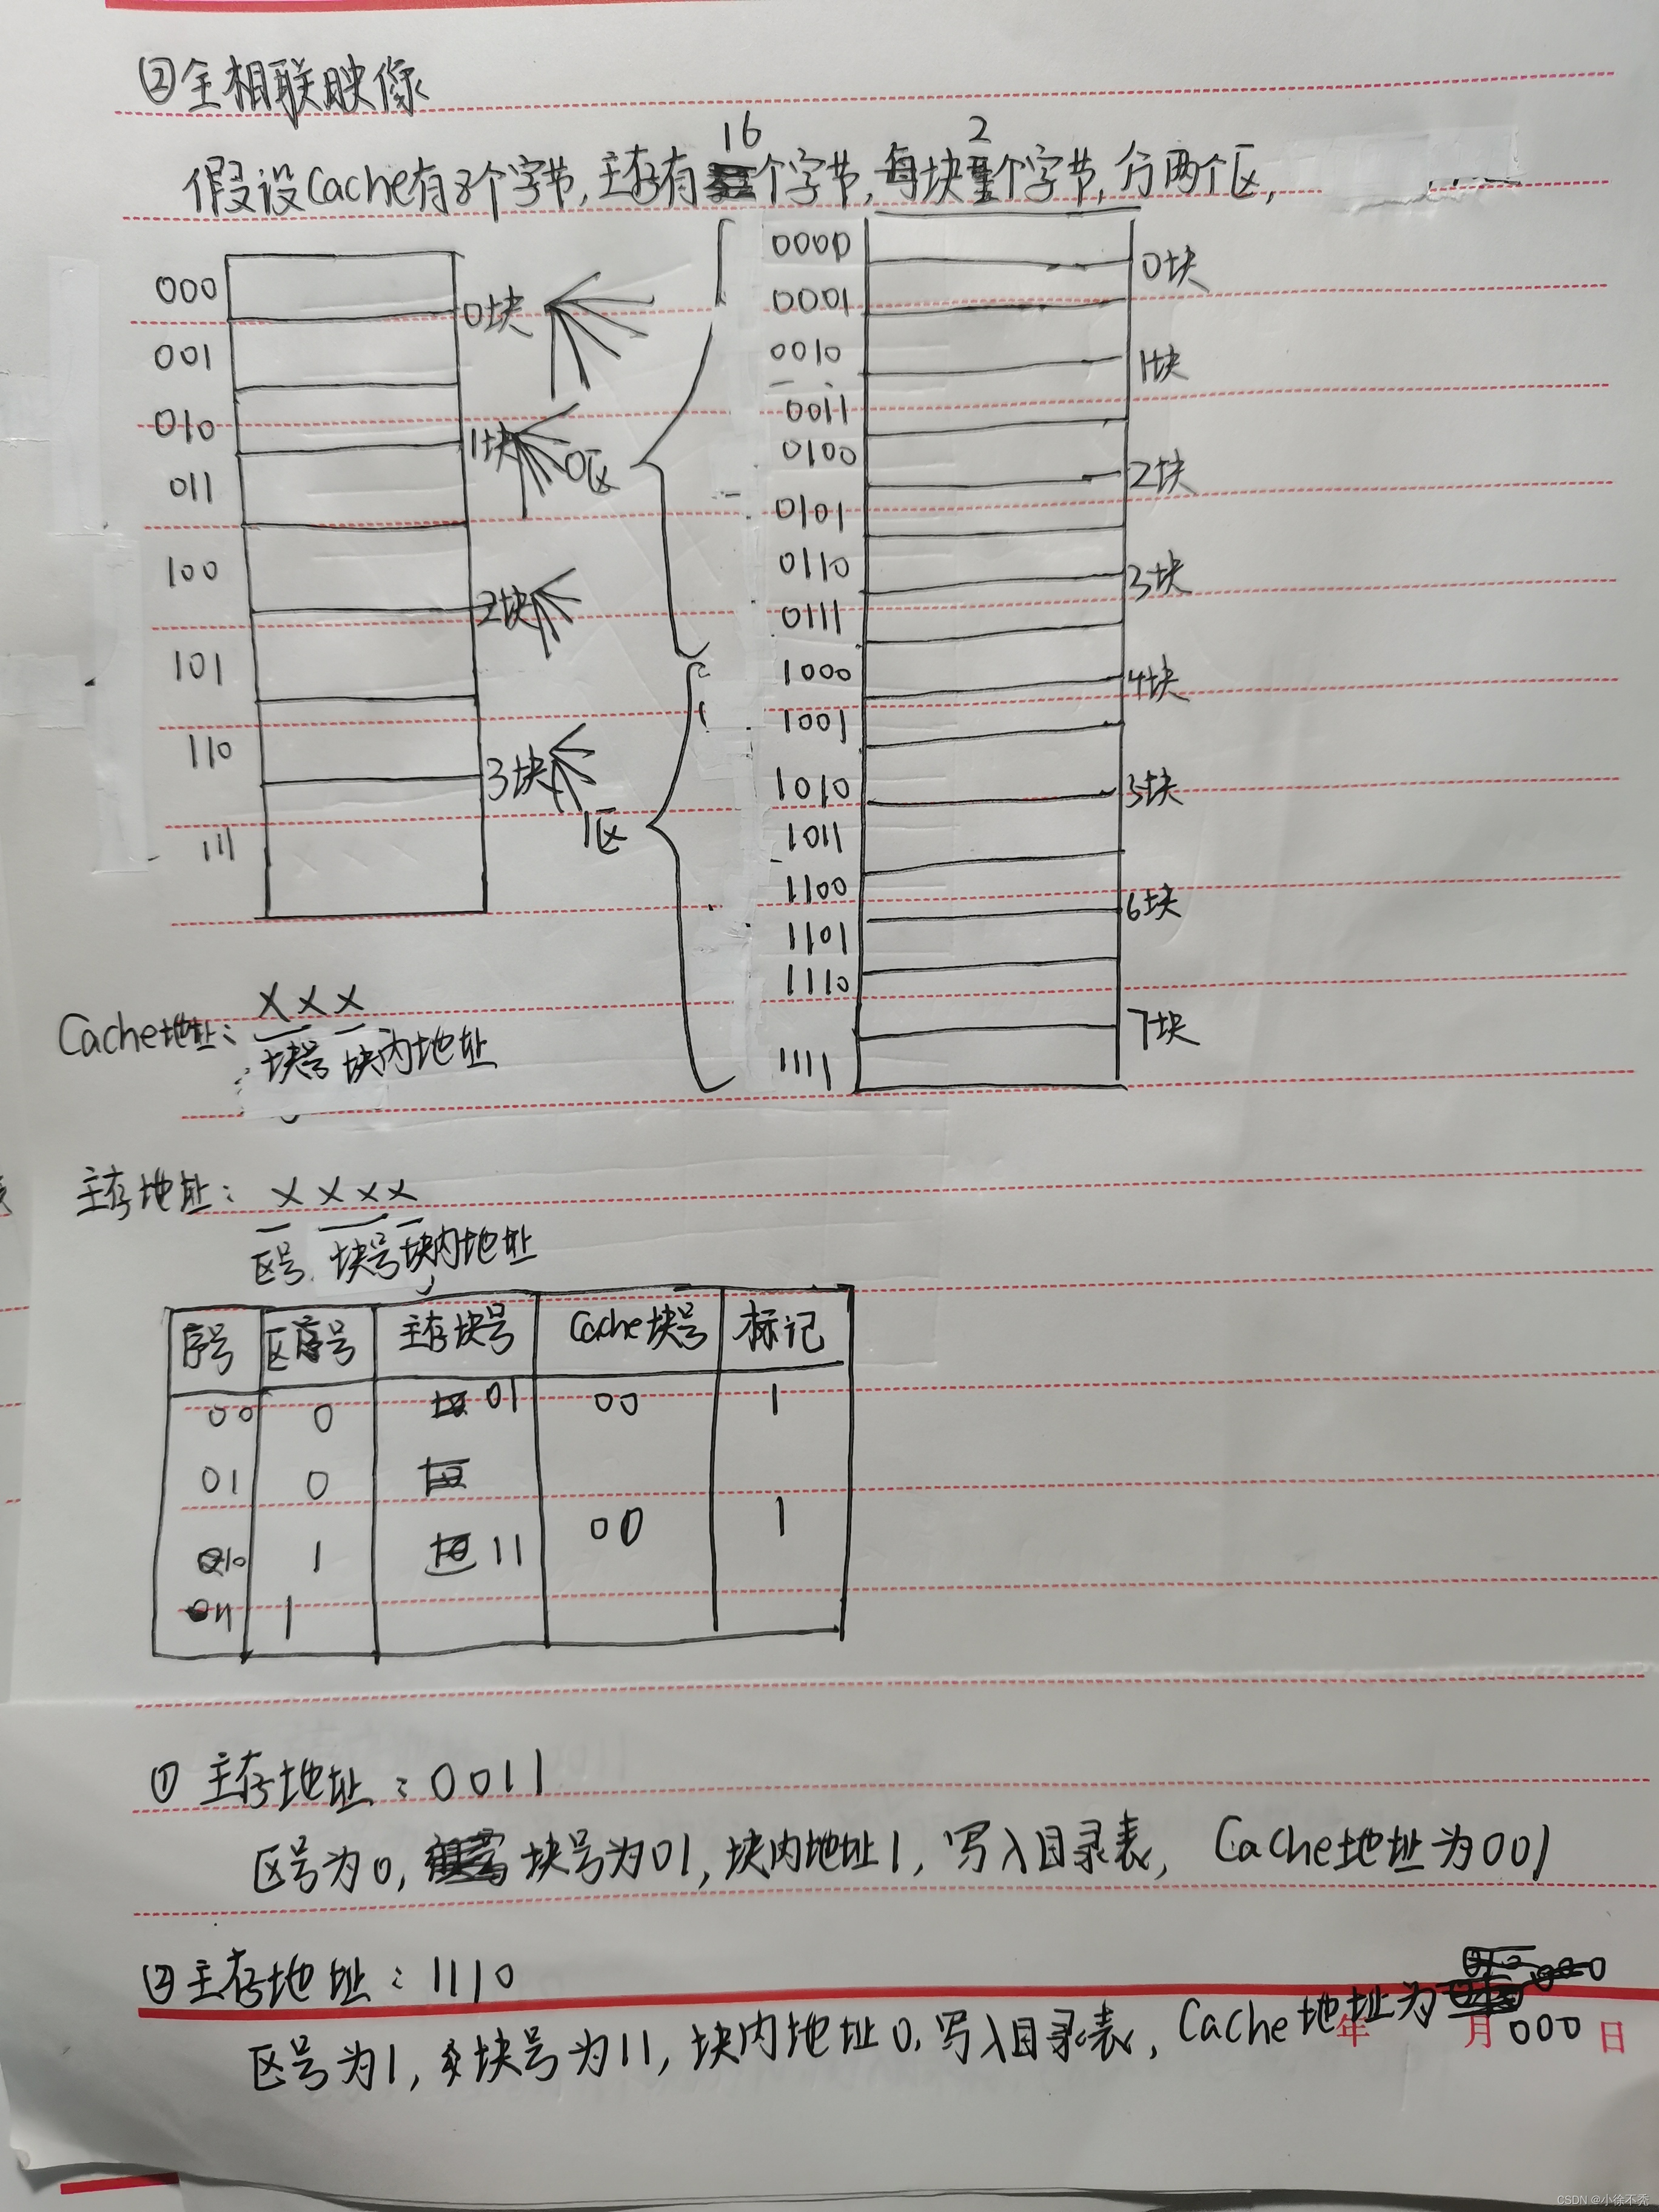 ②全相联映像
16 2
假设Cache有8个字节,主存有个字节,每块个字节,分两个区,
000
001
010
011
100
101
110
111
0块
1块
2块
3块
0区
1区
0000
0001
0010
0011
0100
0101
0110
0111
1000
1001
1010
1011
1100
1101
1110
1111
0块
1块
2块
3块
4块
5块
6块
7块
Cache地址: X X X
块号 块内地址
主存地址: X X X X
区号 块号 块内地址
序号 区序号 主存块号 Cache块号 标记
00 0 01 00 1
01 0
10 1 11 00 1
11 1
① 主存地址:0011
区号为0, 块号为01, 块内地址1, 写入目录表, Cache地址为001
② 主存地址:1110
区号为1, 块号为11, 块内地址0, 写入目录表, Cache地址为 000
年 月 日
CSDN @小徐不秃